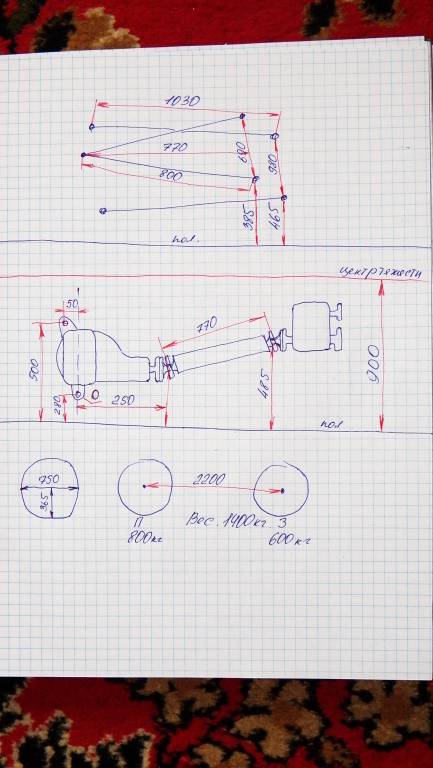 1030
770
800
690
980
385
465
пол.
центр тяжести
50
770
500
280
О
250
485
900
пол
750
365
2200
П Вес. 1400кг. З
800кг 600кг